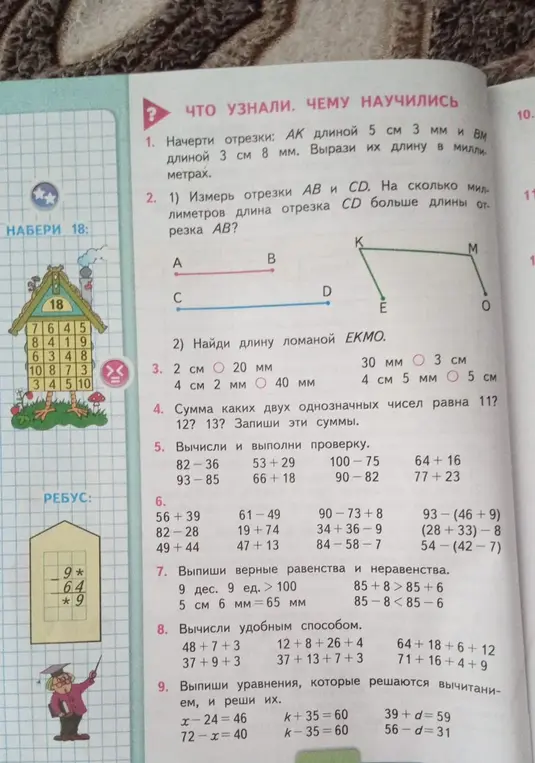 ? ЧТО УЗНАЛИ. ЧЕМУ НАУЧИЛИСЬ
1. Начерти отрезки: AK длиной 5 см 3 мм и BM
длиной 3 см 8 мм. Вырази их длину в милли-
метрах.
2. 1) Измерь отрезки AB и CD. На сколько мил-
лиметров длина отрезка CD больше длины от-
резка AB?
A B
C D
K M
E O
2) Найди длину ломаной EKMO.
3. 2 см ○ 20 мм 30 мм ○ 3 см
4 см 2 мм ○ 40 мм 4 см 5 мм ○ 5 см
4. Сумма каких двух однозначных чисел равна 11?
12? 13? Запиши эти суммы.
5. Вычисли и выполни проверку.
82 − 36 53 + 29 100 − 75 64 + 16
93 − 85 66 + 18 90 − 82 77 + 23
6.
56 + 39 61 − 49 90 − 73 + 8 93 − (46 + 9)
82 − 28 19 + 74 34 + 36 − 9 (28 + 33) − 8
49 + 44 47 + 13 84 − 58 − 7 54 − (42 − 7)
7. Выпиши верные равенства и неравенства.
9 дес. 9 ед. > 100 85 + 8 > 85 + 6
5 см 6 мм = 65 мм 85 − 8 < 85 − 6
8. Вычисли удобным способом.
48 + 7 + 3 12 + 8 + 26 + 4 64 + 18 + 6 + 12
37 + 9 + 3 37 + 13 + 7 + 3 71 + 16 + 4 + 9
9. Выпиши уравнения, которые решаются вычитани-
ем, и реши их.
x − 24 = 46 k + 35 = 60 39 + d = 59
72 − x = 40 k − 35 = 60 56 − d = 31
НАБЕРИ 18:
18
7 6 4 5
8 4 1 9
6 3 4 8
10 8 7 3
3 4 5 10
РЕБУС:
− 9*
64
*9
10.
11
1